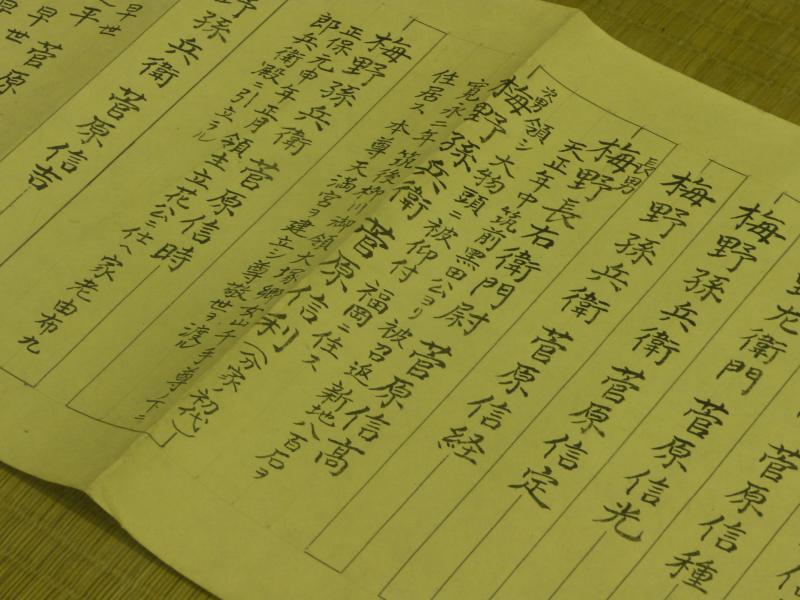 菅原信種
野左衛門 菅原信光
梅野孫兵衛 菅原信定
梅野孫兵衛 菅原信経
長男
梅野長右衛門尉 菅原信高
天正年中筑前黒田公ヨリ被召返新地八百石ヲ
領シ大物頭ニ被仰付福岡ニ住ス
次男
梅野孫兵衛 菅原信利(分家ノ初代)
寛永二年筑後柳川御領大塚郷女山千手尊ノ下ニ
住居ス 本尊天満宮ヲ建立シ尊敬世ヲ渡ル
梅野孫兵衛 菅原信時
正保元申年正月領主立花公ニ仕ヘ家老由布九
郎兵衛殿ニ引立ラル
野孫兵衛 菅原信吉
早世
早世 菅原
早世